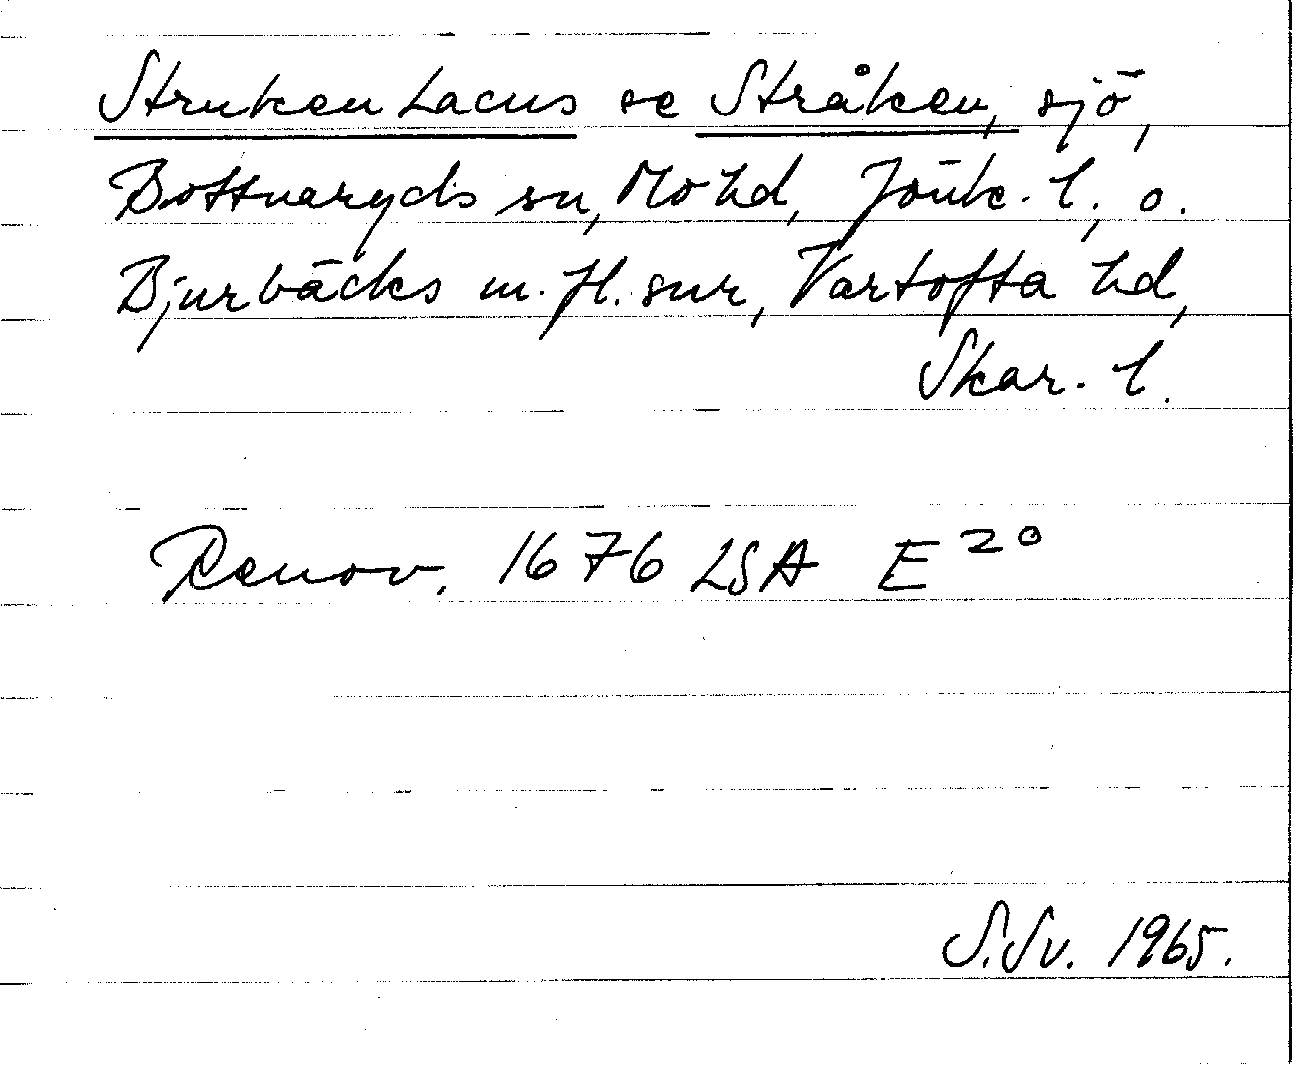 Struken Lacus se Stråken, sjö,
Bottnaryds sn, Mo hd, Jönk. l., o.
Bjurbäcks m. fl. snr, Vartofta hd,
Skar. l.
Renov. 1676 LSA E 20
S.Sv. 1965.